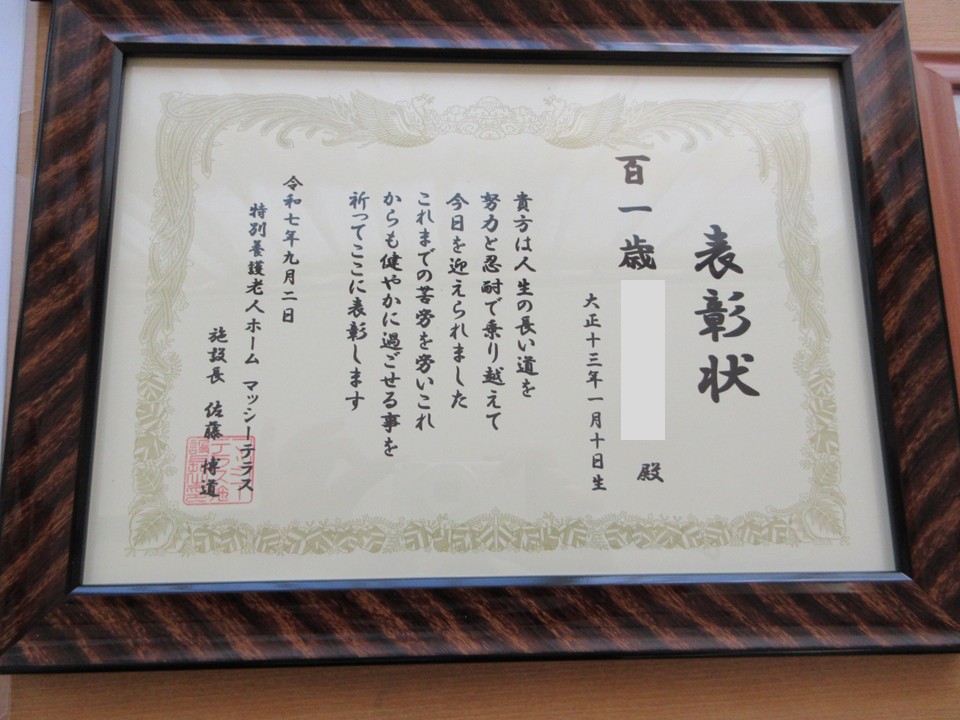 表彰状
百一歳 殿
大正十三年一月十日生
貴方は人生の長い道を
努力と忍耐で乗り越えて
今日を迎えられました
これまでの苦労を労いこれ
からも健やかに過ごせる事を
祈ってここに表彰します
令和七年九月二日
特別養護老人ホーム マッシーテラス
施設長 佐藤 博道